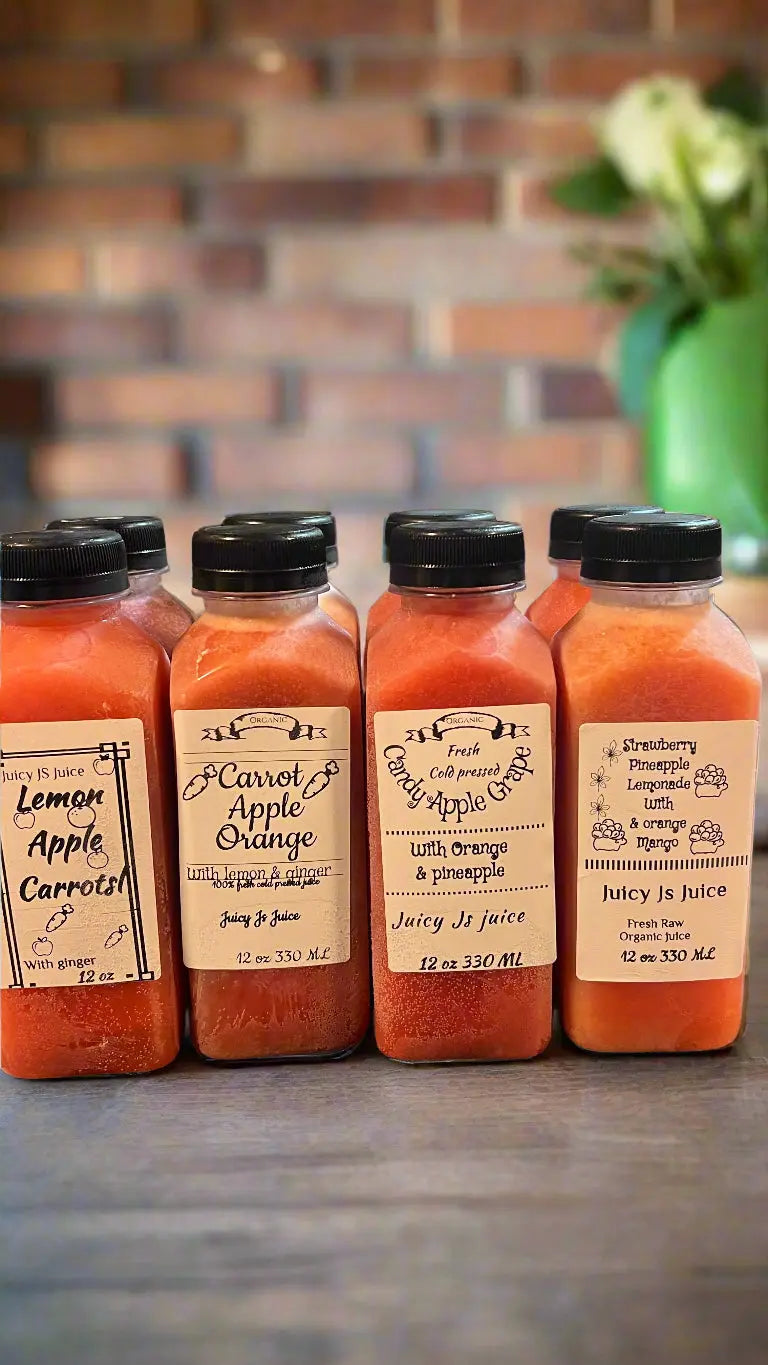 Juicy JS Juice
Lemon
Apple
Carrots!
With ginger
12 oz
ORGANIC
Carrot
Apple
Orange
With lemon & ginger
100% fresh cold pressed juice
Juicy Js Juice
12 oz 330 ML
ORGANIC
Fresh
Cold pressed
Candy Apple Grape
With Orange
& pineapple
Juicy Js juice
12 oz 330 ML
Strawberry
Pineapple
Lemonade
With
& orange
Mango
Juicy Js Juice
Fresh Raw
Organic juice
12 oz 330 ML